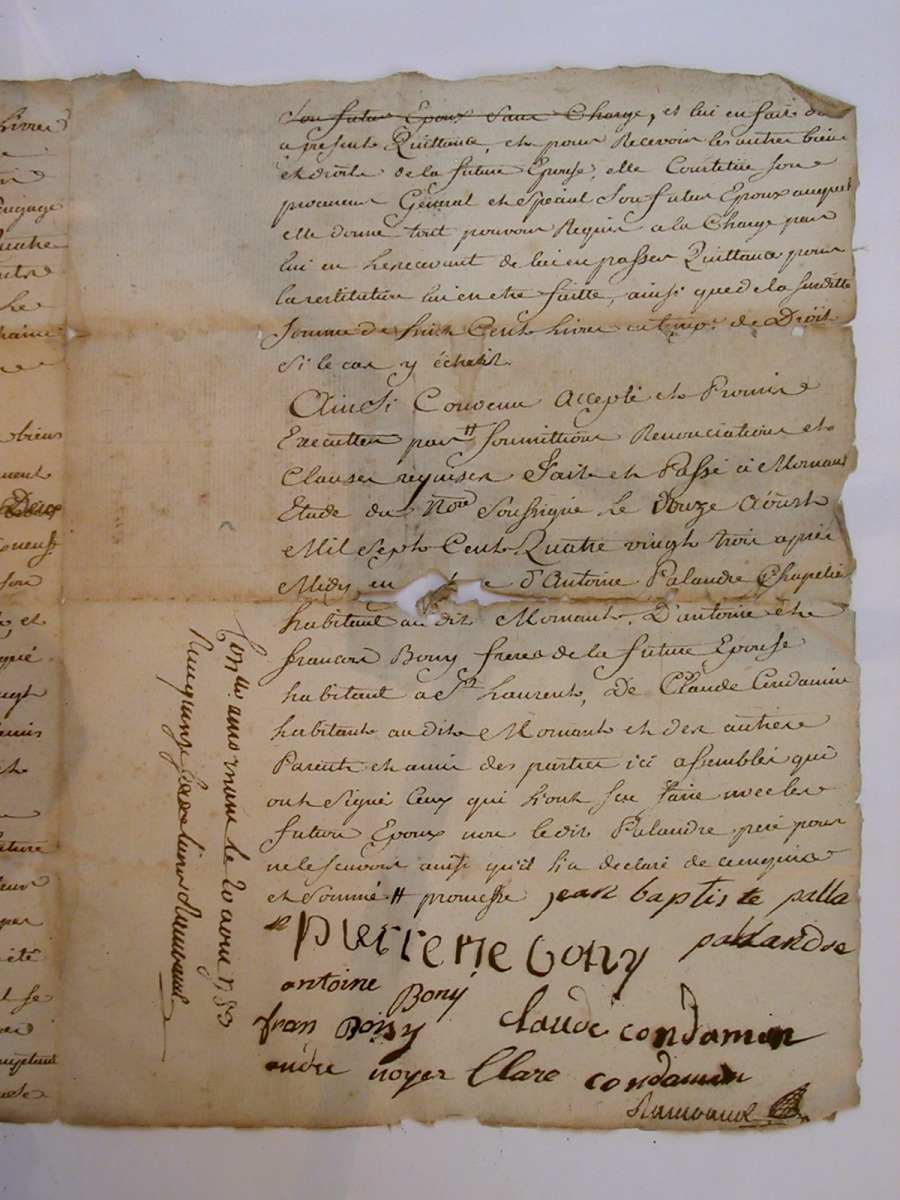 son futur Epoux s'en Charge, et lui en fait de
a present Quittance, et pour Recevoir les autres biens
et droits de la future Epouse, elle Constitue son
procureur Général et spécial Son futur Epoux auquel
elle donne tout pouvoir Requis a la Charge par
lui en recevant de lui en passer Quittance pour
la restitution lui en etre faitte, ainsi que de la susditte
somme de huit Cent livres au temps de Droit
si le cas y échoit
Ainsi Convenu Accepté et Promis
Executter par Soumittions Renonciations et
Clauses requises Fait et Passé à Mornant
Etude du Nore Soussigné le Douze Aoust
Mil Sept Cent Quatre vingt trois après
Midy en d'Antoine Palandre Chapelier
habitant au dit Mornant, D'antoine et
francois Bony freres de la future Epouse
habitant a St Laurent, De Claude Condamin
habitant audit Mornant et des autres
Parents et amis des parties ici assemblés qui
ont signé Ceux qui l'ont sçu faire avec les
futurs Epoux non ledit Palandre pere pour
ne le scavoir ainsi qu'il l'a declaré de ce enquis
et sommé promesse jean baptiste palla
pallandre
Pierrette bony
antoine Bony
fran Bony claude condamin
andre noyer Clare condamin
livres
engage
quatre
he
biens
ment
Deux
son
et
vingt
ture
per
été
se
Con.lle a mornant le 20 aout 1783